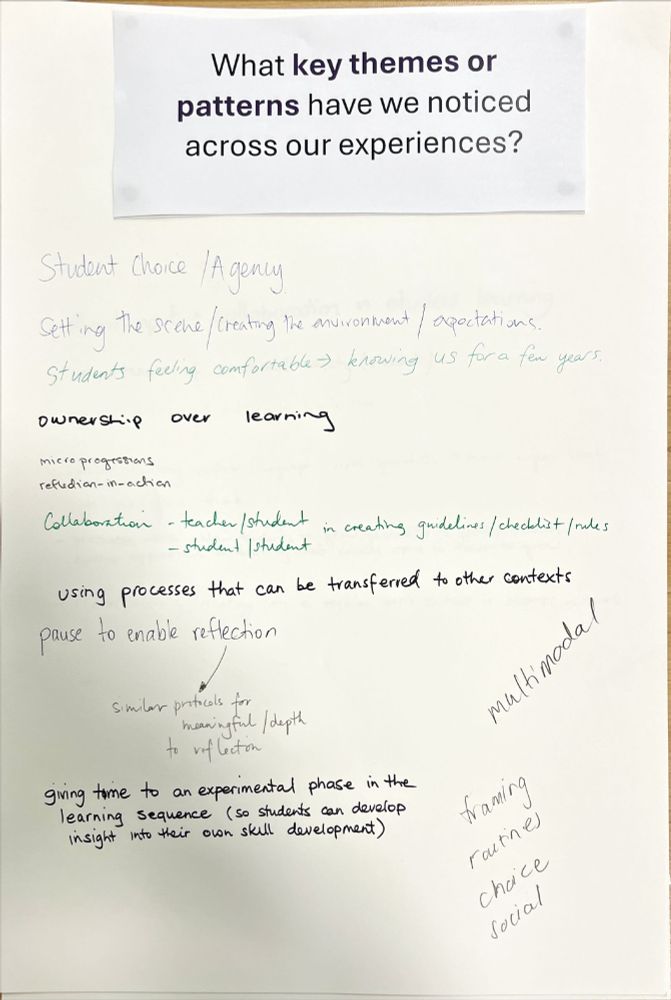 What key themes or
patterns have we noticed
across our experiences?
Student Choice / Agency
Setting the scene/creating the environment / expectations.
Students feeling comfortable → knowing us for a few years.
ownership over learning
micro progressions
reflection-in-action
Collaboration - teacher/student in creating guidelines/checklist/rules
- student/student
using processes that can be transferred to other contexts
pause to enable reflection
similar protocols for
meaningful/depth
to reflection
multimodal
giving time to an experimental phase in the
learning sequence (so students can develop
insight into their own skill development)
framing
routines
choice
social